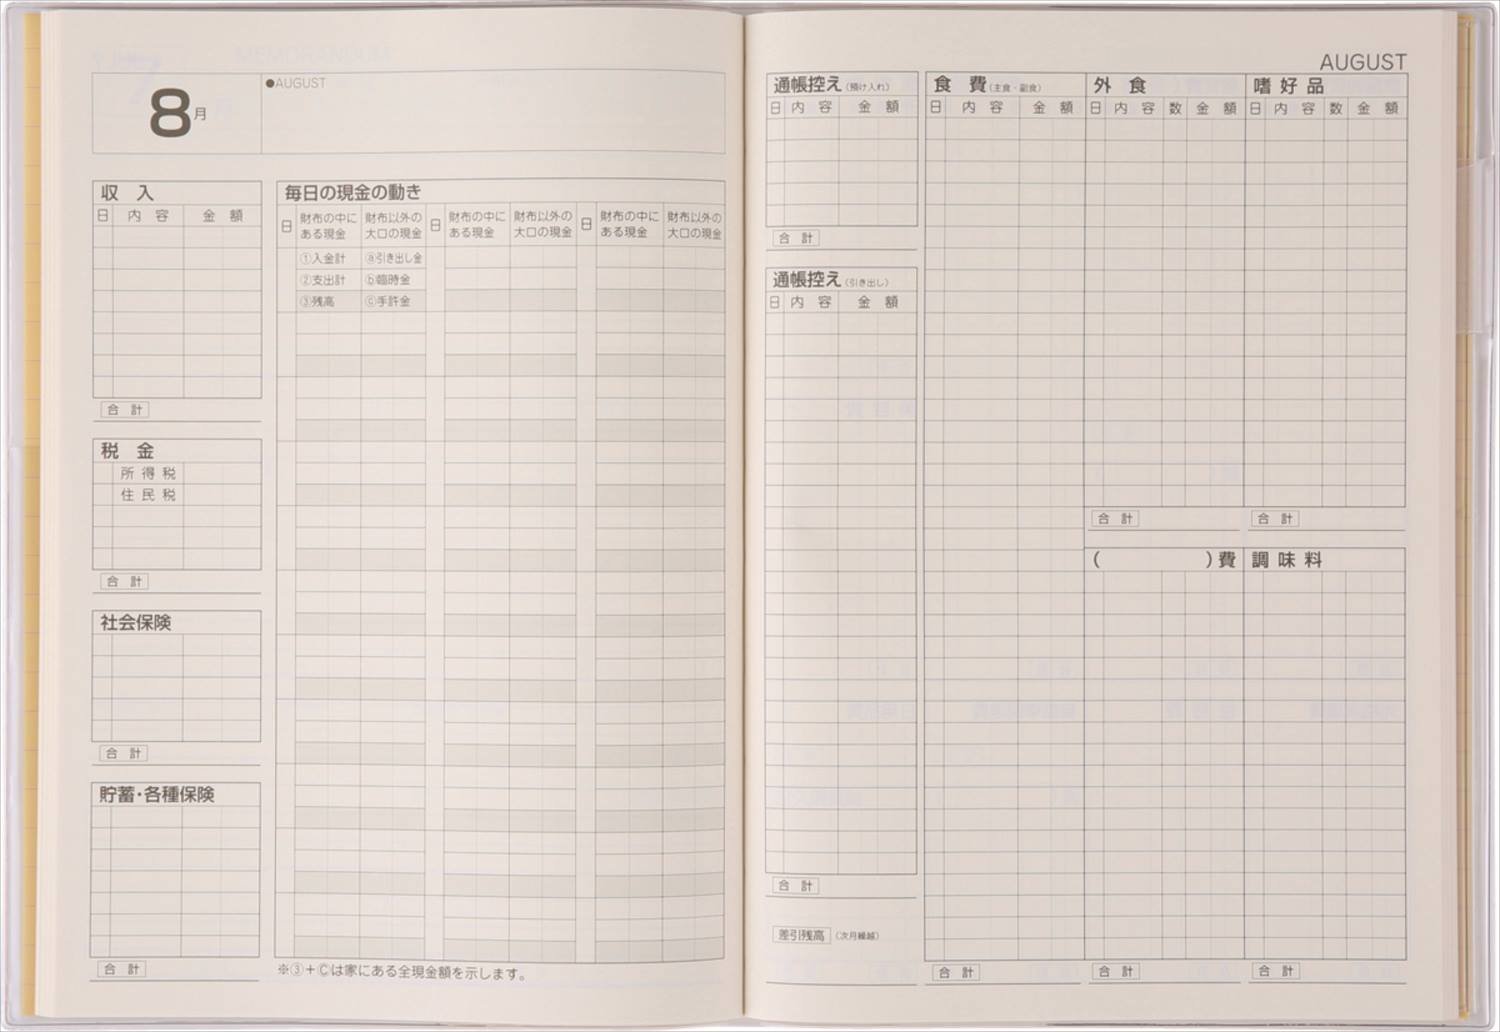 8月
●AUGUST
収 入
日 内 容 金 額
合 計
税 金
所 得 税
住 民 税
合 計
社会保険
合 計
貯蓄・各種保険
合 計
毎日の現金の動き
日 財布の中にある現金 財布以外の大口の現金 日 財布の中にある現金 財布以外の大口の現金 日 財布の中にある現金 財布以外の大口の現金
①入金計 ⓐ引き出し金
②支出計 ⓑ臨時金
③残高 ⓒ手許金
※③+Ⓒは家にある全現金額を示します。
AUGUST
通帳控え(預け入れ)
日 内 容 金 額
合 計
通帳控え(引き出し)
日 内 容 金 額
合 計
差引残高 (次月繰越)
食 費(主食・副食)
日 内 容 金 額
合 計
外 食
日 内 容 数 金 額
合 計
嗜 好 品
日 内 容 数 金 額
合 計
( )費
合 計
調 味 料
合 計